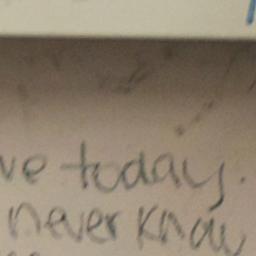 ve today.
never know